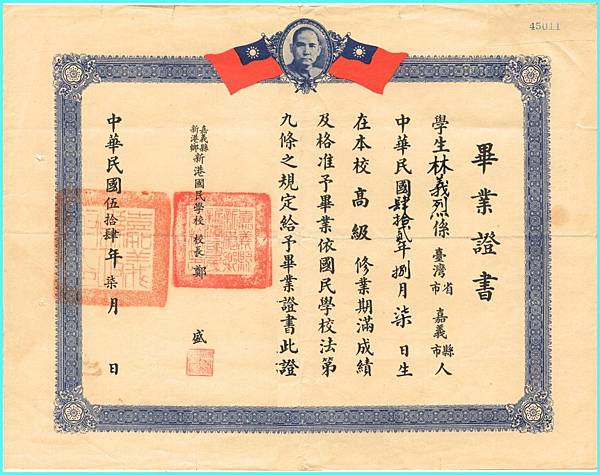 45011
畢業證書
學生林義烈係臺灣省市嘉義縣市人
中華民國肆拾貳年捌月柒日生
在本校高級修業期滿成績
及格准予畢業依國民學校法第
九條之規定給予畢業證書此證
嘉義縣新港鄉新港國民學校校長鄭盛
中華民國伍拾肆年柒月日